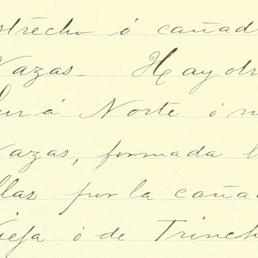 strecho ó cañad
Nazas. Hay otr
Sur á Norte ó
Nazas, formada
llas por la caña
Vieja ó de Trinch